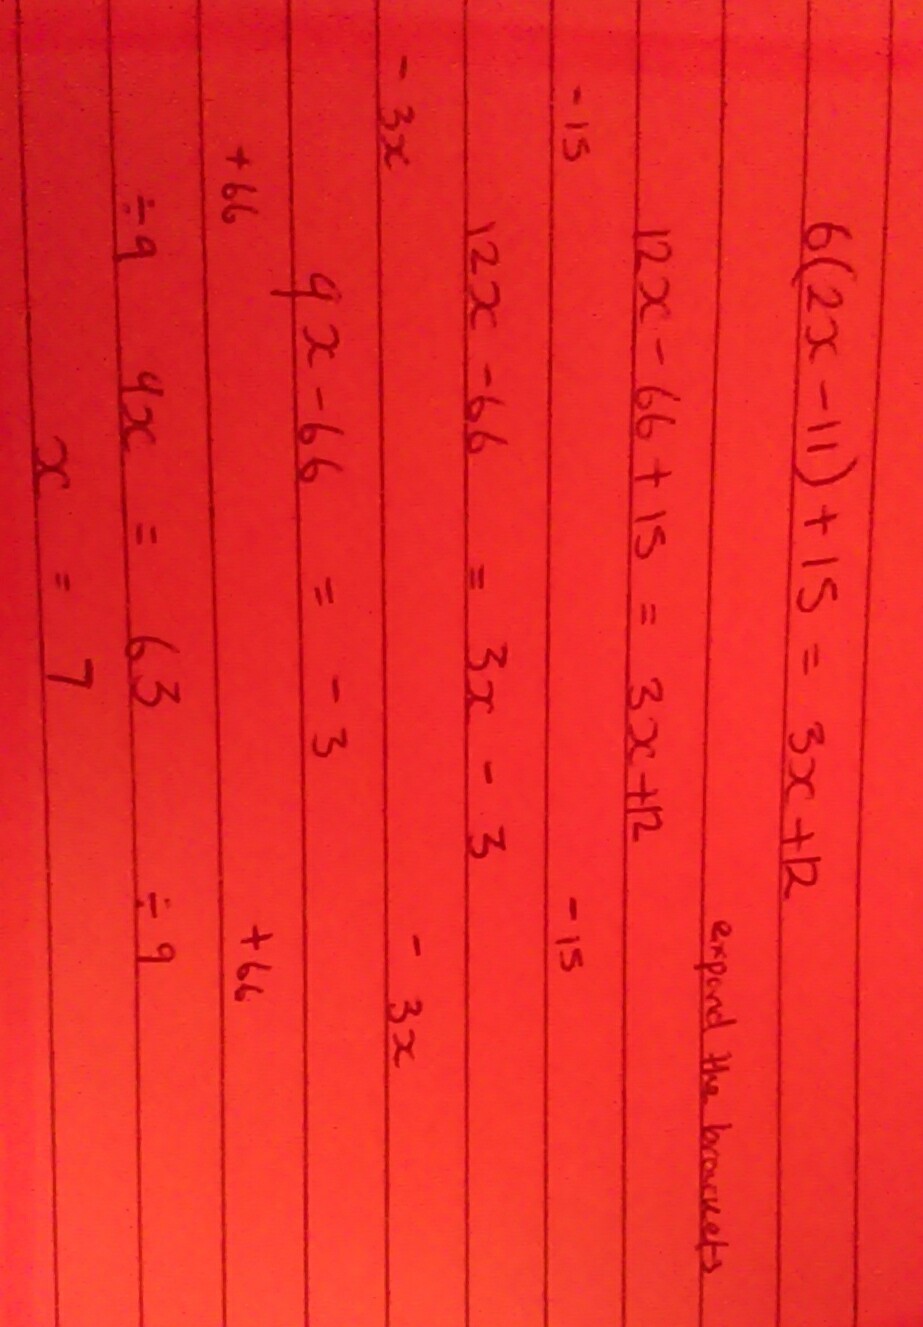 6(2x - 11) + 15 = 3x + 12
expand the brackets
12x - 66 + 15 = 3x + 12
- 15 - 15
12x - 66 = 3x - 3
- 3x - 3x
9x - 66 = - 3
+ 66 + 66
÷ 9 9x = 63 ÷ 9
x = 7